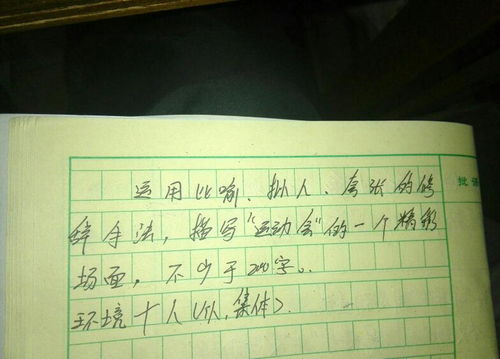 运用比喻、拟人、夸张的修
辞手法，描写“运动会”的一个精彩
场面，不少于200字。
环境十人（个人，集体）.
批